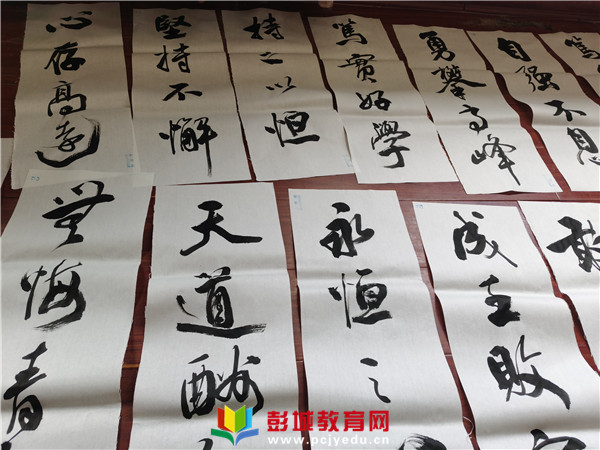 心存高遠
堅持不懈
持之以恒
篤實好學
勇攀高峰
自强不息
篤
無悔青
天道酬
永恒之
成王敗
敢
彭城教育网
www.pcjyedu.cn